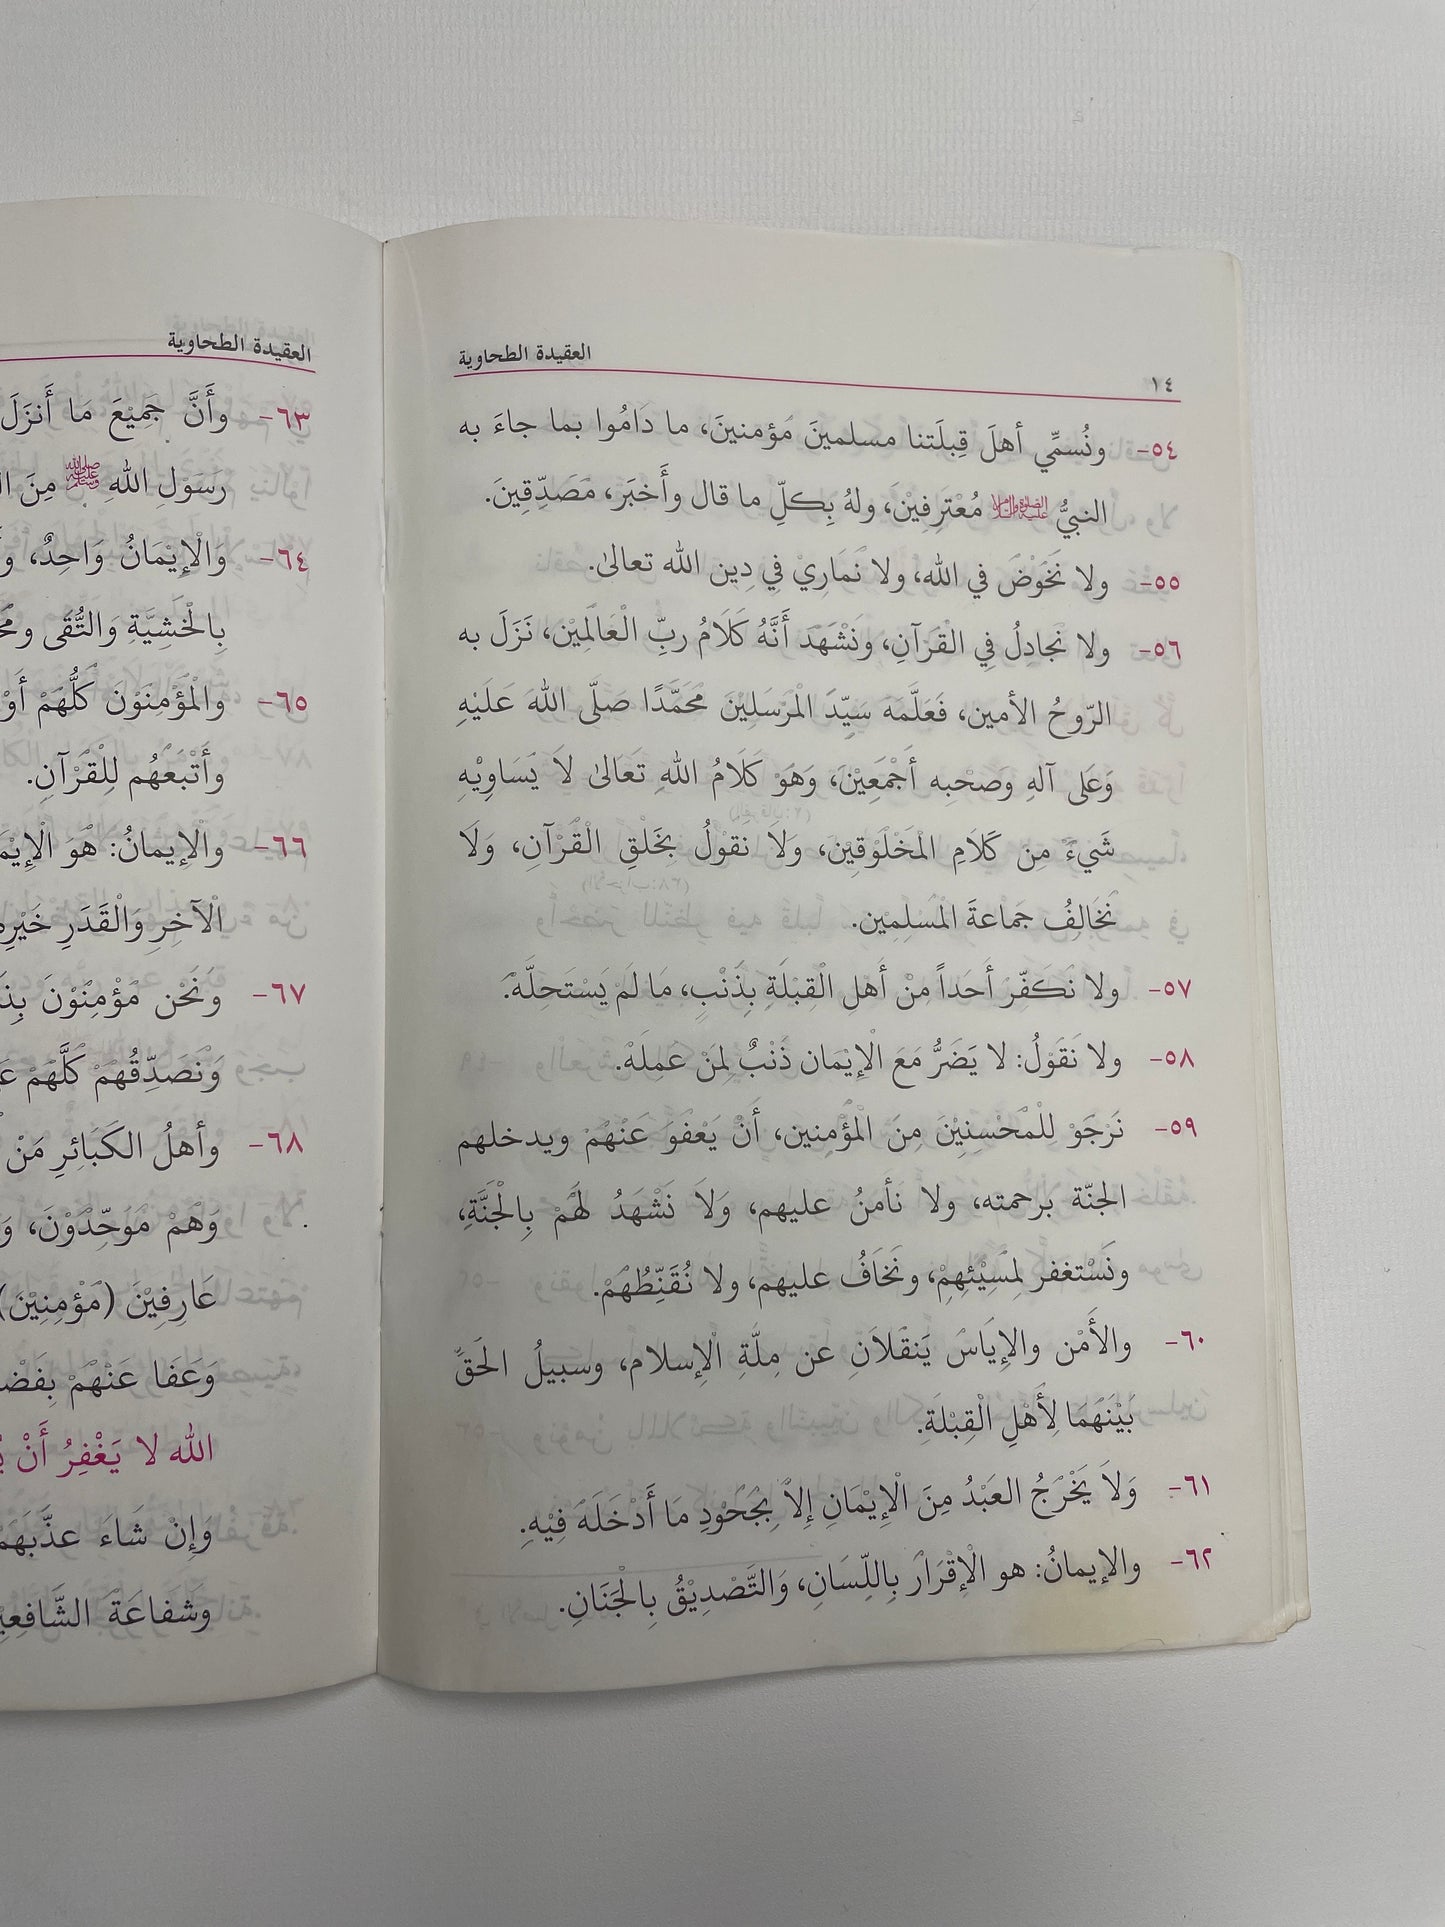 ١٤
العقيدة الطحاوية
٥٤- ونُسمِّي أهلَ قِبلَتنا مسلمينَ مُؤمنينَ، ما دَامُوا بما جاءَ به
النبيُّ عليه الصلاة والسلام مُعْتَرِفِيْنَ، ولهُ بِكلِّ ما قال وأَخبَر، مُصَدِّقِينَ.
٥٥- ولا نَخُوْضُ في الله، ولا نُمَارِيْ فِي دِين الله تعالىٰ.
٥٦- ولا نُجادِلُ فِي الْقُرآنِ، ونَشْهَدُ أَنَّهُ كَلَامُ ربِّ الْعَالَمِيْن، نَزَلَ به
الرّوحُ الأمين، فَعَلَّمَه سَيِّدَ الْمُرسَلِيْنَ مُحَمَّدًا صَلّى اللهُ عَلَيْهِ
وَعَلى آلهِ وَصَحْبِه أَجْمَعِيْنَ، وَهُوَ كَلَامُ اللهِ تَعَالىٰ لاَ يُسَاوِيْهِ
شَيءٌ مِن كَلَامِ الْمَخْلُوْقِيْنَ، ولا نقوْلُ بِخَلْقِ الْقُرْآنِ، وَلَا
نُخَالِفُ جَماعةَ الْمُسلِمِين.
٥٧- ولا نُكَفِّرُ أَحَداً مِنْ أَهلِ الْقِبْلَةِ بِذَنْبٍ، مَا لَمْ يَسْتَحِلَّهُ.
٥٨- ولا نَقُوْلُ: لا يَضُرُّ مَعَ الْإِيْمَان ذَنْبٌ لِمَنْ عَمِلَهُ.
٥٩- نَرْجُوْ لِلْمُحْسِنِيْنَ مِنَ الْمُؤْمِنين، أَنْ يَعْفُوَ عَنْهُمْ ويدخلهم
الجنّة برحمته، ولا نأمنُ عليهم، وَلاَ نَشْهَدُ لَهُمْ بِالْجَنَّةِ،
ونَسْتغفر لِمُسِيْئِهِمْ، ونَخَافُ عليهم، ولا نُقَنِّطُهُمْ.
٦٠- والأَمْن والإِيَاسُ يَنقُلاَنِ عن مِلَّةِ الْإسلام، وسبيلُ الحَقِّ
بَيْنَهُمَا لِأَهْلِ الْقِبْلَةِ.
٦١- وَلاَ يَخْرُجُ العَبْدُ مِنَ الْإِيْمَانِ إِلاَّ بِجُحُوْدِ مَا أَدْخَلَهُ فِيْهِ.
٦٢- والإيمانُ: هو الْإقْرَارُ بِاللِّسَانِ، وَالتَّصْدِيْقُ بِالْجَنَانِ.
العقيدة الطحاوية
٦٣- وأَنَّ جَمِيْعَ مَا أَنزَلَ
رَسُوْلِ اللهِ ﷺ مِنَ
٦٤- وَالْإِيْمَانُ وَاحِدٌ،
بِالْخَشِيَّةِ وَالتُّقَى
٦٥- والْمُؤْمِنُوْنَ كُلُّهُمْ
وأَتْبَعُهُم لِلْقُرْآنِ.
٦٦- والْإِيمانُ: هُوَ
الْآخِرِ وَالْقَدَرِ
٦٧- ونَحْن مُؤْمِنُوْنَ
وَنُصَدِّقُهُمْ كُلَّهُمْ
٦٨- وأهلُ الكَبَائِرِ مَنْ
وَهُمْ مُوَحِّدُوْنَ،
عَارِفِيْنَ (مُؤْمِنِيْنَ)
وَعَفَا عَنْهُمْ
الله لا يَغْفِرُ أَنْ
وَإِنْ شَاءَ
وشَفاعَةُ